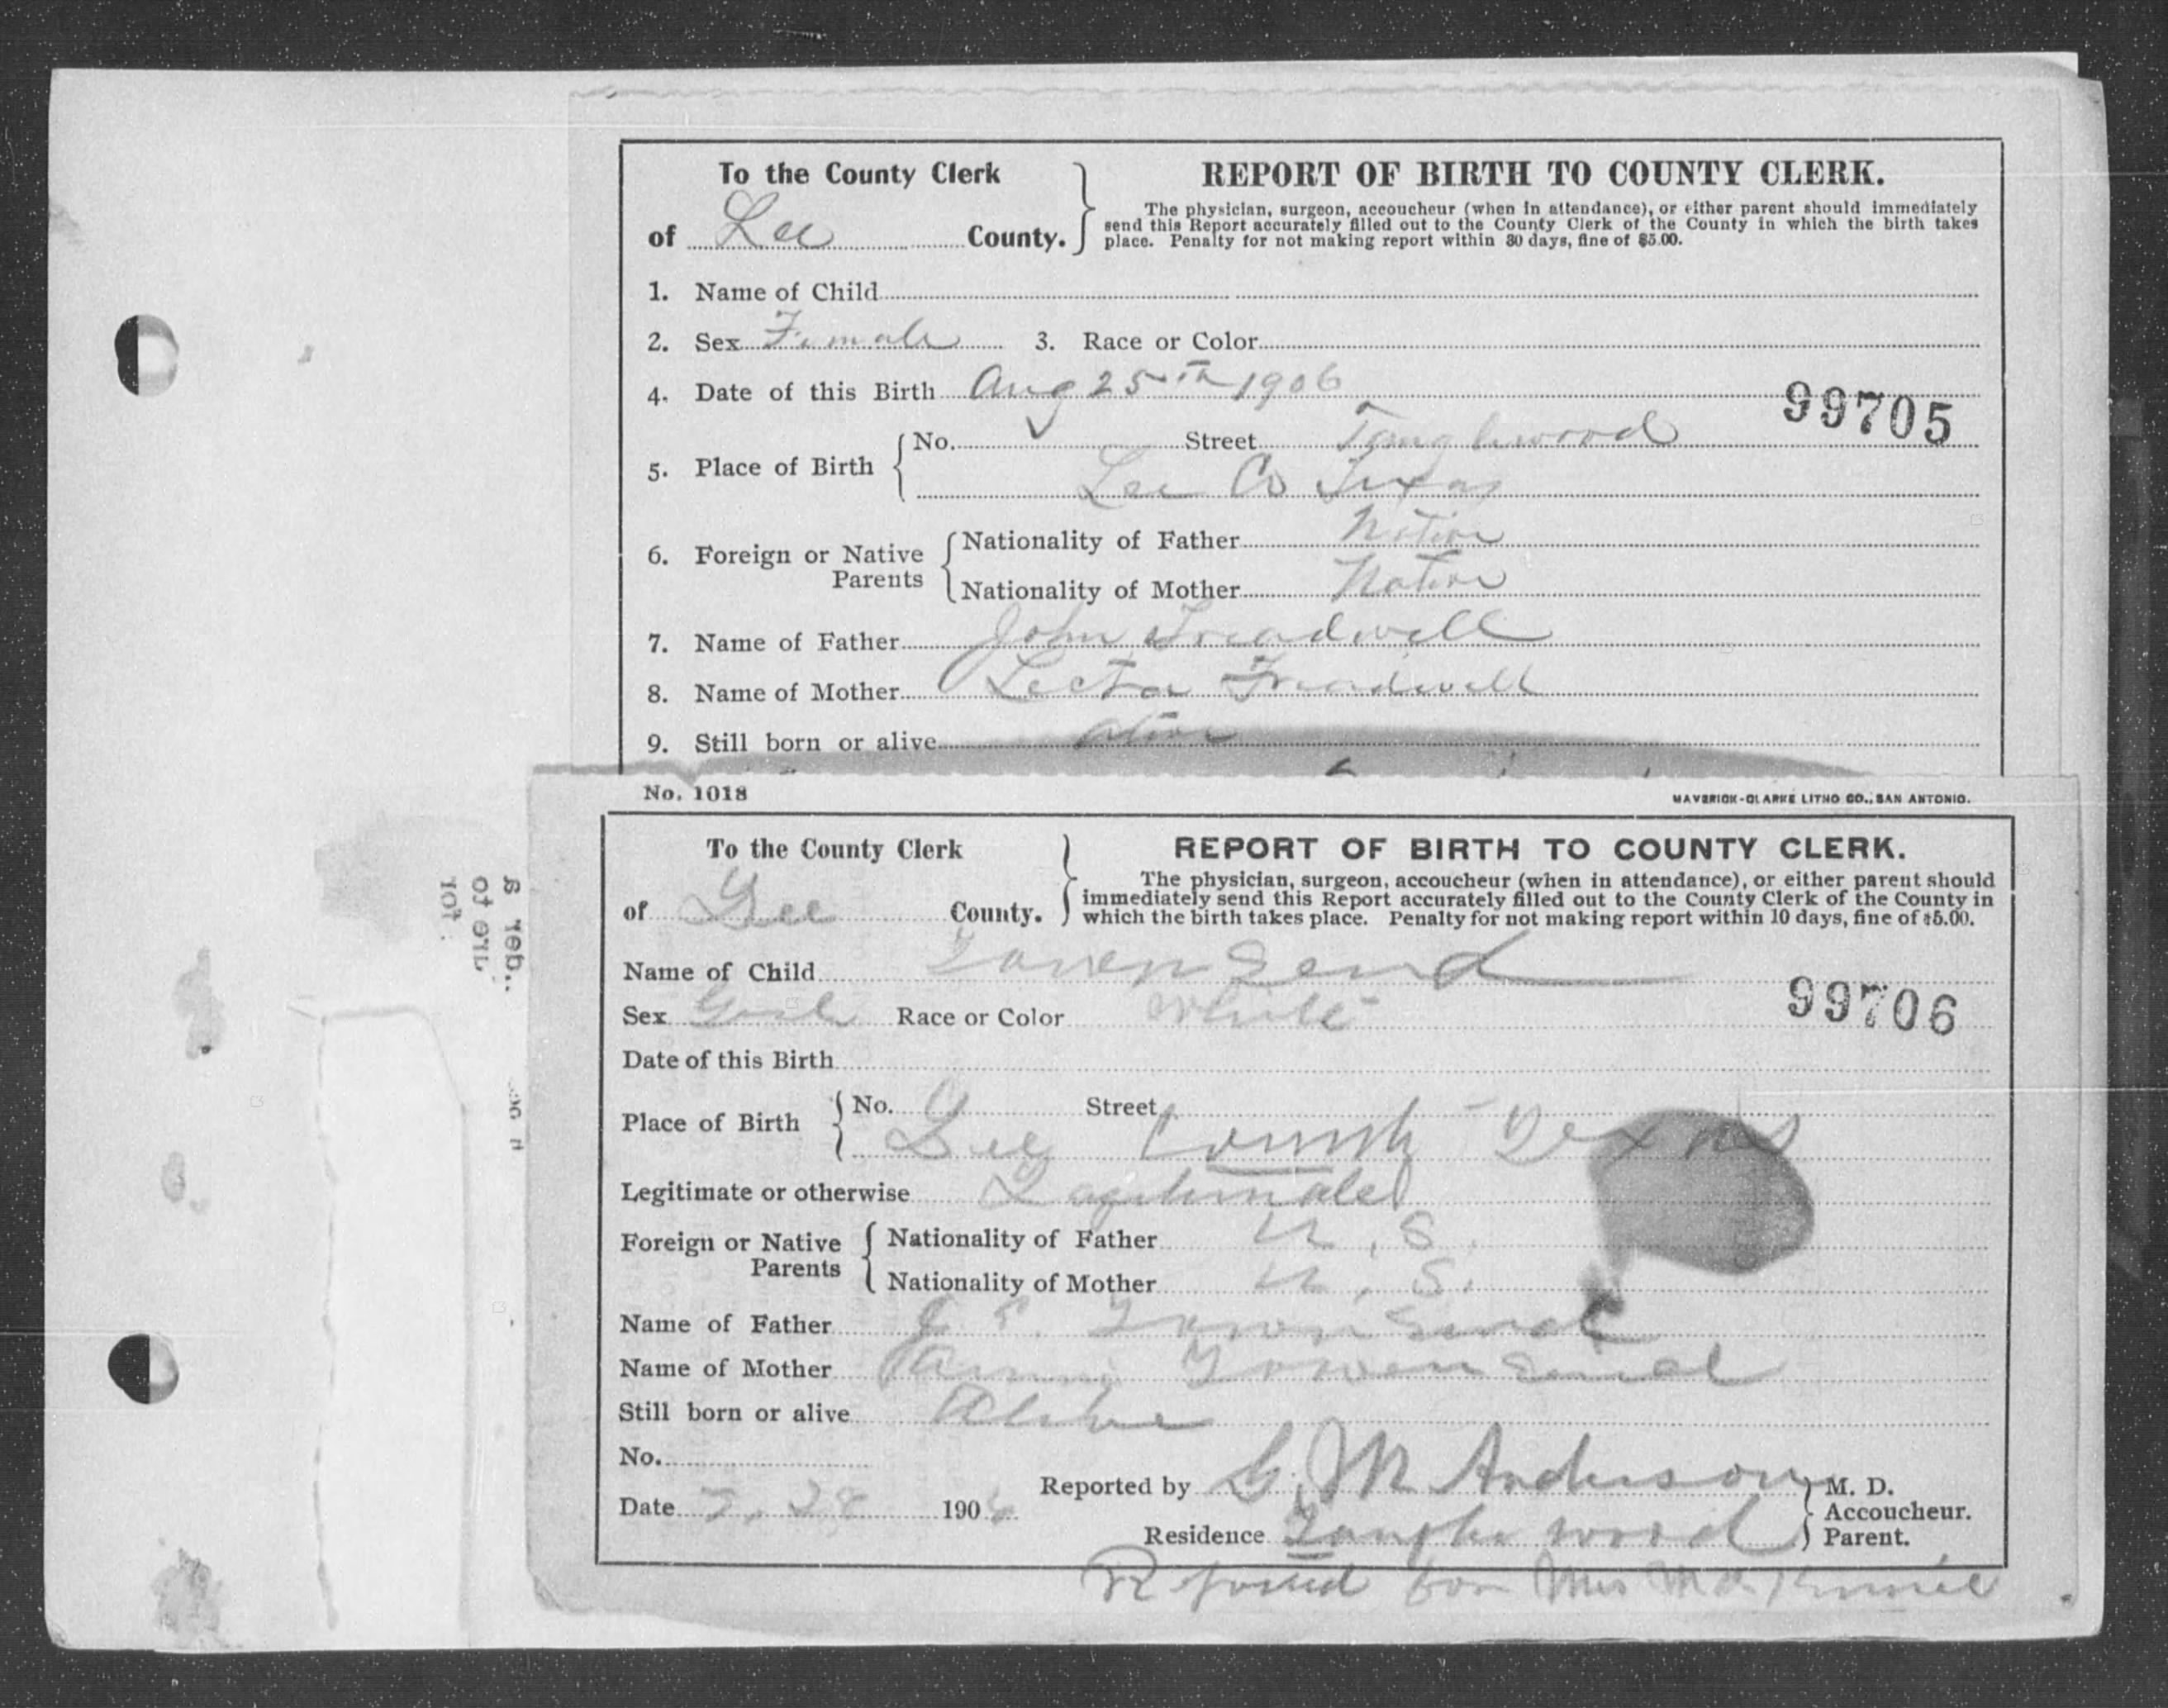 To the County Clerk
of Lee County.
REPORT OF BIRTH TO COUNTY CLERK.
The physician, surgeon, accoucheur (when in attendance), or either parent should immediately
send this Report accurately filled out to the County Clerk of the County in which the birth takes
place. Penalty for not making report within 30 days, fine of $5.00.
1. Name of Child
2. Sex Female 3. Race or Color
4. Date of this Birth Aug 25th 1906
99705
5. Place of Birth No. Street Tanglewood
Lee Co Texas
6. Foreign or Native Parents
Nationality of Father Native
Nationality of Mother Native
7. Name of Father John Treadwell
8. Name of Mother Lecta Treadwell
9. Still born or alive alive
No. 1018 MAVERICK-CLARKE LITHO CO., SAN ANTONIO.
To the County Clerk
of Lee County.
REPORT OF BIRTH TO COUNTY CLERK.
The physician, surgeon, accoucheur (when in attendance), or either parent should
immediately send this Report accurately filled out to the County Clerk of the County in
which the birth takes place. Penalty for not making report within 10 days, fine of $5.00.
Name of Child Townsend
99706
Sex Girl Race or Color White
Date of this Birth
Place of Birth No. Street
Lee County Texas
Legitimate or otherwise Lagitimate
Foreign or Native Parents
Nationality of Father U.S.
Nationality of Mother U.S.
Name of Father Townsend
Name of Mother Townsend
Still born or alive Alive
No.
Date 28 190
Reported by G. M Anderson M. D.
Accoucheur.
Residence Tanglewood Parent.
for Mrs